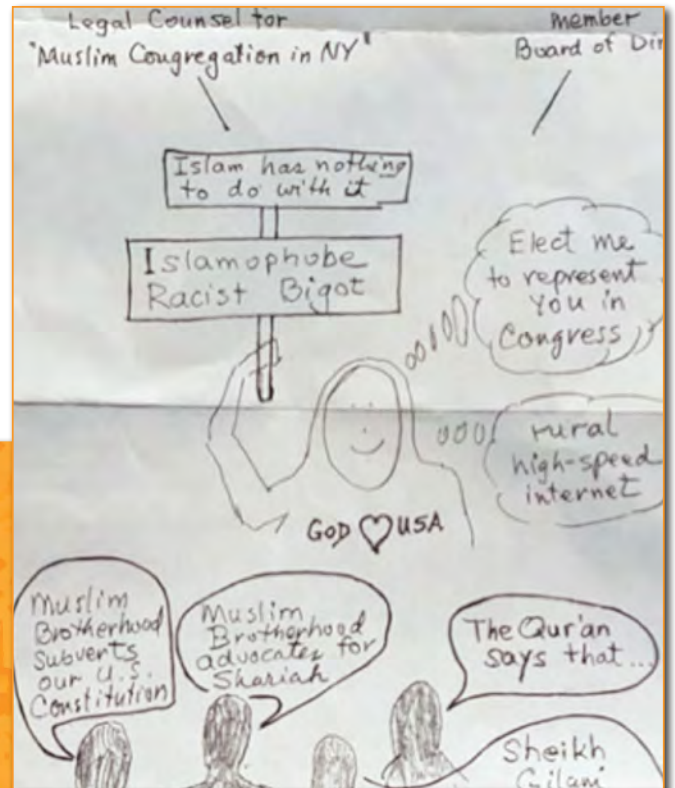 Legal Counsel for
"Muslim Congregation in NY"
member
Board of Dir
Islam has nothing
to do with it
Islamophobe
Racist Bigot
Elect me
to represent
You in
Congress
rural
high-speed
internet
GOD ♡ USA
Muslim
Brotherhood
Subverts
our U.S.
Constitution
Muslim
Brotherhood
advocates for
Shariah
The Qur'an
says that...
Sheikh
Gilani